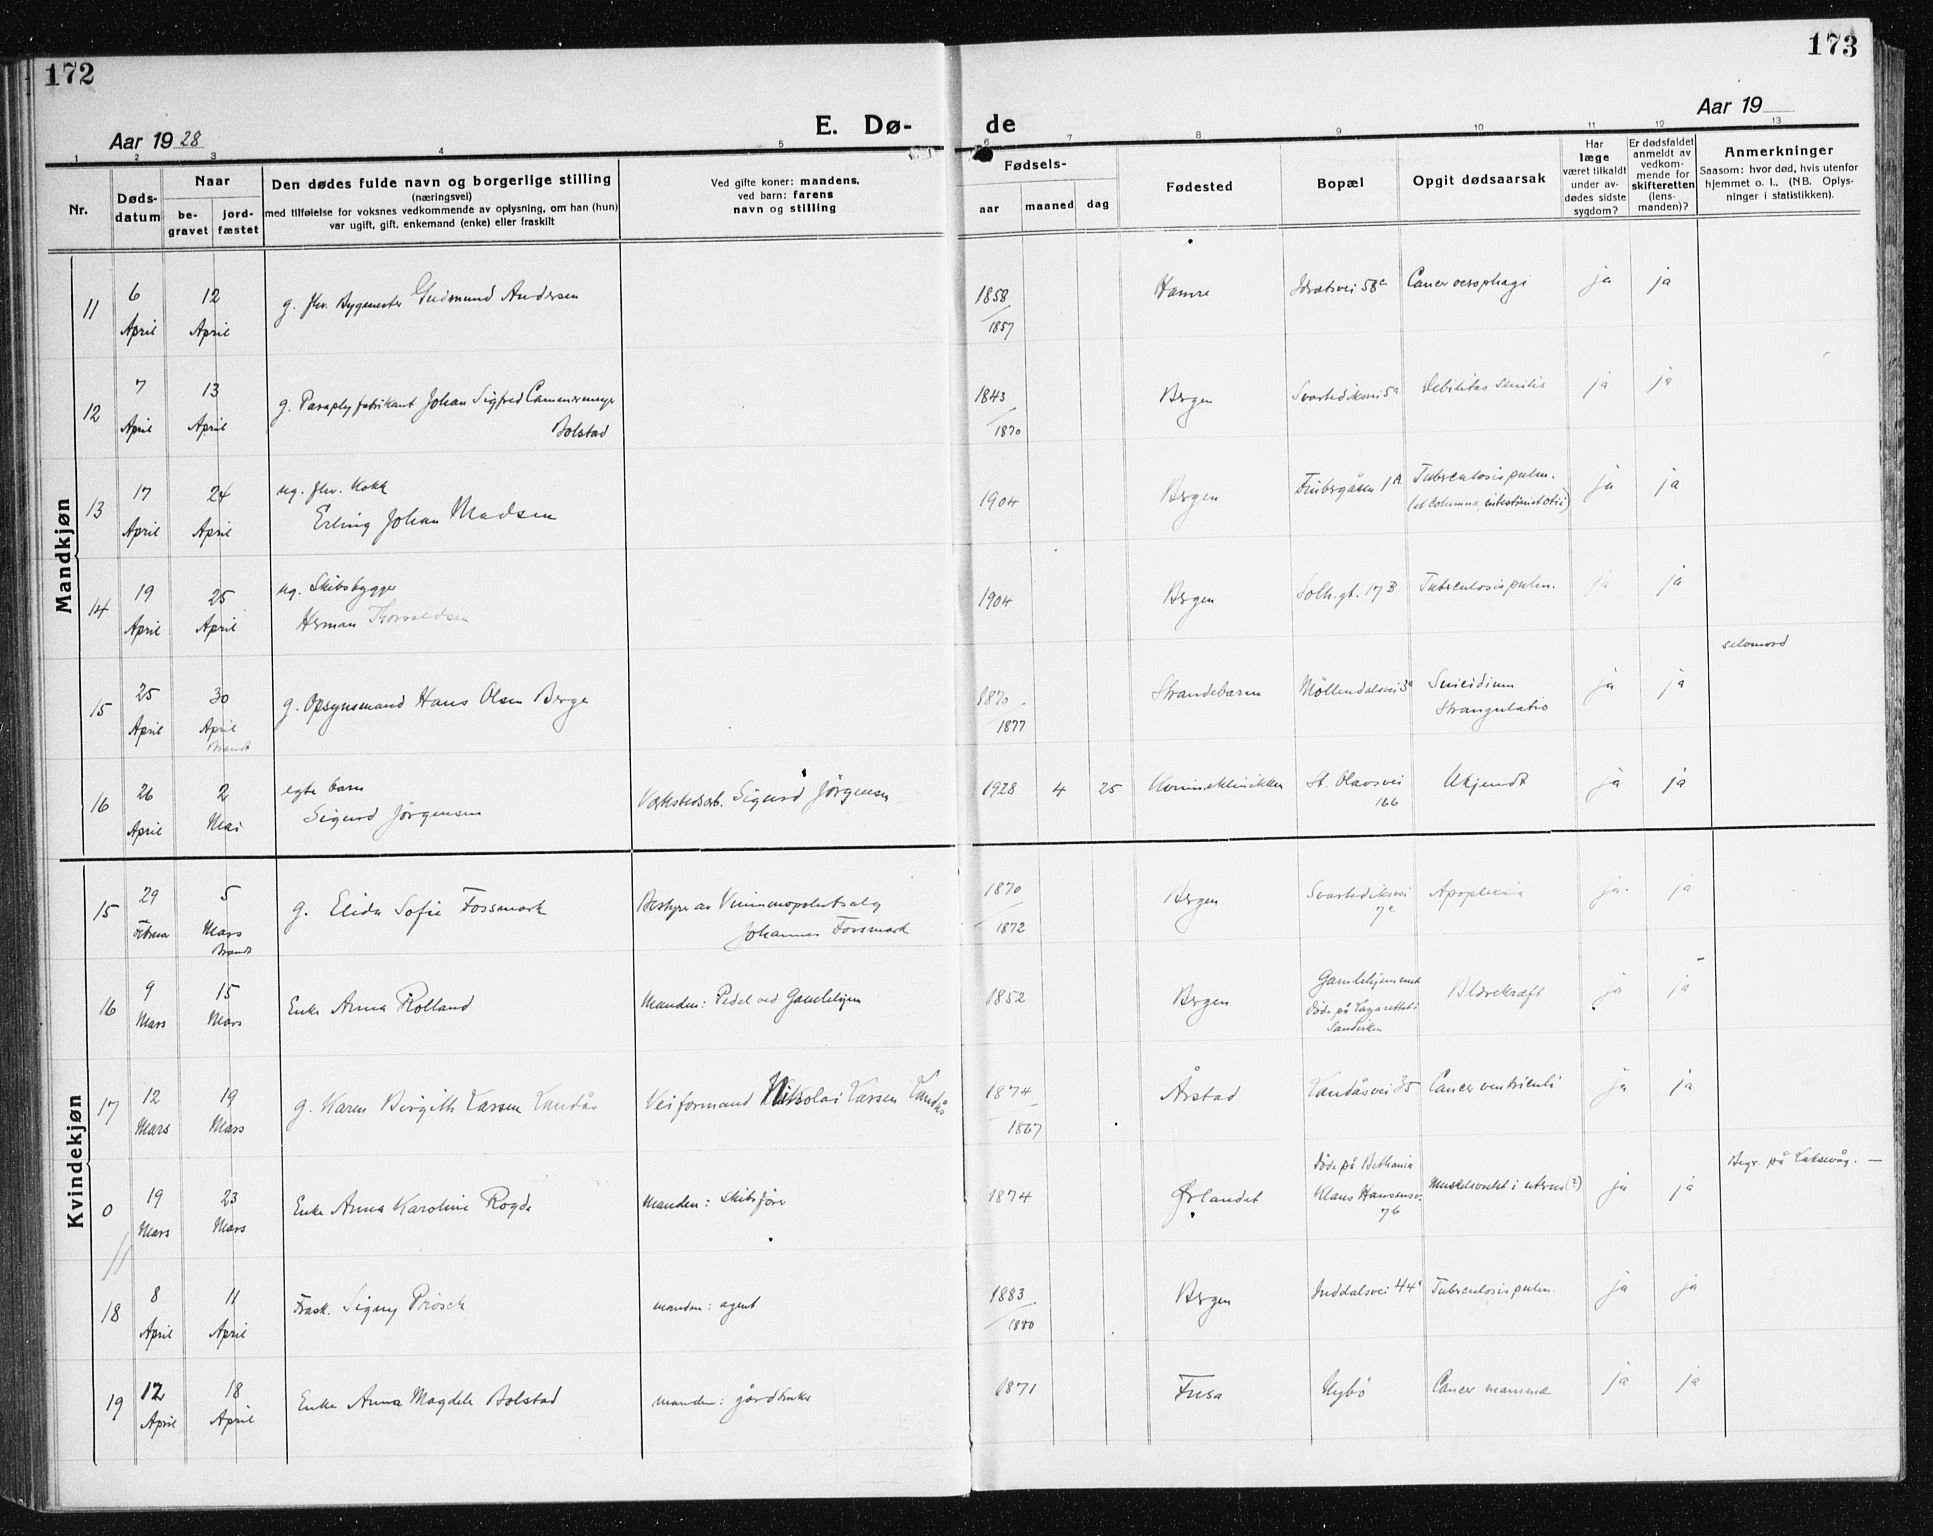 172
173
Aar 1928
E. Dø-
de
Aar 19
1 2 3 4 5 6 7 8 9 10 11 12 13
Nr.
Døds-
datum
Naar
be-
gravet
jord-
fæstet
Den dødes fulde navn og borgerlige stilling
(næringsvei)
med tilføielse for voksnes vedkommende av oplysning, om han (hun)
var ugift, gift, enkemand (enke) eller fraskilt
Ved gifte koner: mandens,
ved barn: farens
navn og stilling
Fødsels-
aar maaned dag
Fødested
Bopæl
Opgit dødsaarsak
Har
læge
været tilkaldt
under av-
dødes sidste
sygdom?
Er dødsfaldet
anmeldt av
vedkom-
mende for
skifteretten
(lens-
manden)?
Anmerkninger
Saasom: hvor død, hvis utenfor
hjemmet o. l.. (NB. Oplys-
ninger i statistikken).
Mandkjøn
11 6 April 12 April g. fhv. Bygmester Gudmund Andersen 1858/1857 Hamre Idrætsvei 58c Cancer oesophagi ja ja
12 7 April 13 April g. Paraplyfabrikant Johan Sigfred Camermeyer
Bolstad 1843/1870 Bergen Svartediksvei 5a Debilitas senilis ja ja
13 17 April 24 April ug. fhv. Kokk
Erling Johan Madsen 1904 Bergen 1A Tuberculosis pulm.
(et columna, intestini et otii) ja ja
14 19 April 25 April ug. Skibsbygger
Herman Thorvaldsen 1904 Bergen Solh.gt. 17B Tuberculosis pulm. ja ja
15 25 April 30 April Brændt g. Opsynsmand Hans Olsen Berge 1870/1877 Strandebarm Möllendalsvei 3a Suicidium
Strangulatio ja ja selvmord
16 26 April 2 Mai egte barn
Sigurd Jörgensen Verkstedsarb. Sigurd Jörgensen 1928 4 25 Kvinneklinikken St. Olavsvei
166 Ukjendt ja ja
Kvindekjøn
15 29 Februar 5 Mars Brændt g. Elida Sofie Fossmark Bestyrer av Vinmonopolutsalg
Johannes Fossmark 1870/1872 Bergen Svartediksvei
7a Apoplexia ja ja
16 9 Mars 15 Mars Enke Anna Rolland Manden: Pedel ved Gamlehjem 1852 Bergen Gamlehjemmet
Döde på Lazarettet i
Sandviken Blærekræft ja ja
17 12 Mars 19 Mars g. Karen Birgith Larsen Landås Veiformand Nikolai Larsen Landås 1874/1867 Årstad Landåsvei 35 Cancer ventriculi ja ja
0 19 Mars 23 Mars Enke Anna Karoline Rogde Manden: Skibsförer 1874 Ørlandet Döde på Bethania
Klaus Hansensv.
76 Muskelsvulst i uterus (?) ja ja Begr. på Laksevåg. —
18 8 April 11 April Frask. Signy Prösch manden: agent 1883/1880 Bergen Inddalsvei 44a Tuberculosis pulm. ja ja
19 12 April 18 April Enke Anna Magdele Bolstad manden: gårdbruker 1871 Fusa Nybö Cancer mammæ ja ja